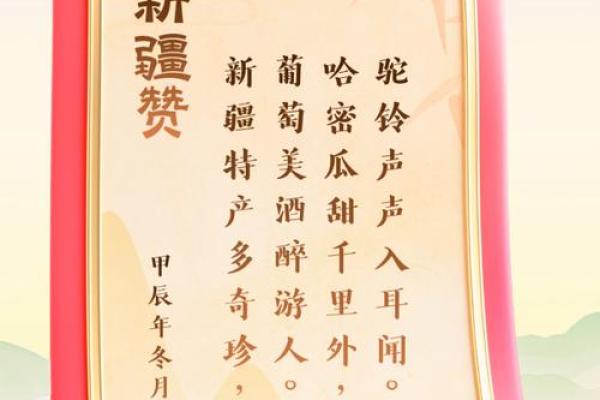 新疆赞
新疆特产多奇珍，
葡萄美酒醉游人。
哈密瓜甜千里外，
驼铃声声入耳闻。
甲辰年冬月